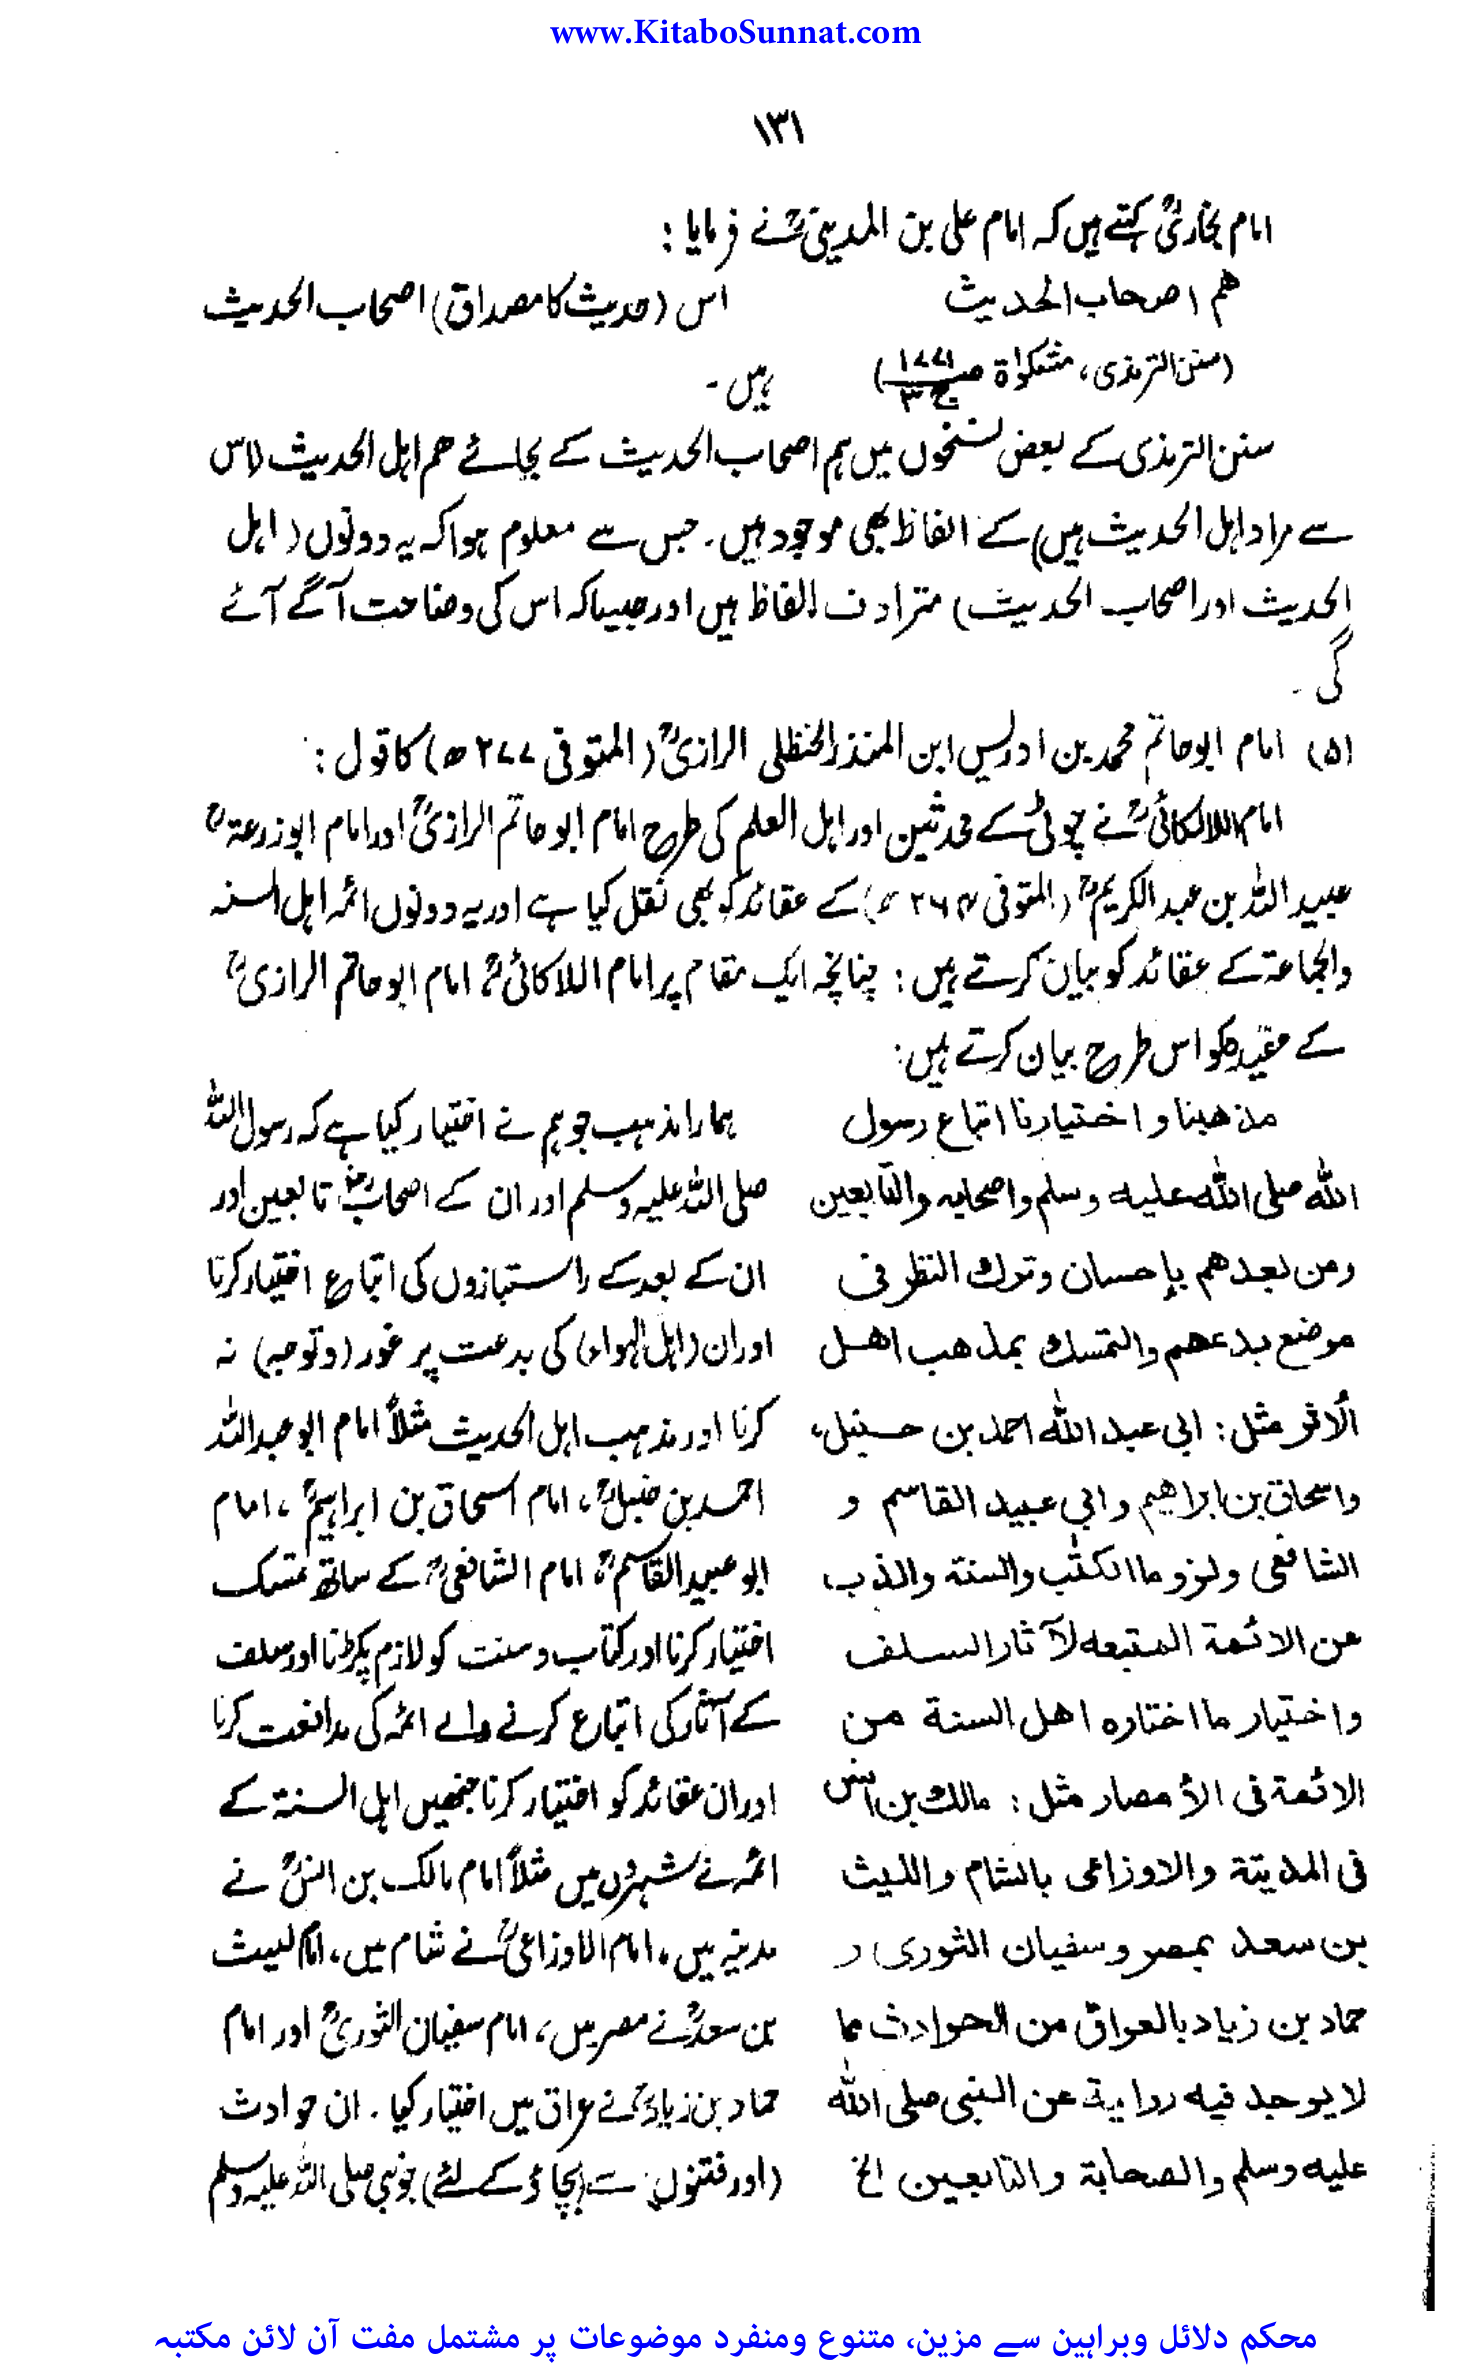 www.KitaboSunnat.com
۱۳۱
امام بخاریؒ کہتے ہیں کہ امام علی بن المدینیؒ نے فرمایا :
هم اصحاب الحديث
اس (حدیث کا مصداق) اصحاب الحدیث
(سنن الترمذی، مشکوٰة ص ۱۷۷۱ ج ۳)
ہیں۔
سنن الترمذی کے بعض نسخوں میں ہم اصحاب الحدیث کے بجائے هم اہل الحدیث (اس
سے مراد اہل الحدیث ہیں) کے الفاظ بھی موجود ہیں۔ جس سے معلوم ہوا کہ یہ دونوں (اہل
الحدیث اور اصحاب الحدیث) مترادف الفاظ ہیں اور جیسا کہ اس کی وضاحت آگے آئے
گی۔
(۵) امام ابو حاتم محمد بن ادریس ابن المنذر الحنظلی الرازیؒ (المتوفی ۲۷۷ھ) کا قول :
امام اللالکائیؒ نے چوٹی کے محدثین اور اہل العلم کی طرح امام ابو حاتم الرازیؒ اور امام ابو زرعۃؒ
عبید اللہ بن عبد الکریمؒ (المتوفی ۲۶۴ھ) کے عقائد کو بھی نقل کیا ہے اور یہ دونوں ائمہ اہل السنہ
والجماعۃ کے عقائد کو بیان کرتے ہیں : چنانچہ ایک مقام پر امام اللالکائیؒ امام ابو حاتم الرازیؒ
کے عقیدہ کو اس طرح بیان کرتے ہیں :
مذهبنا واختيارنا اتباع رسول
الله صلى الله عليه وسلم واصحابه والتابعين
ومن بعدهم بإحسان وترك النظر فى
موضع بدعهم والتمسك بمذهب اهل
الأثر مثل : ابي عبد الله احمد بن حنبل،
واسحاق بن ابراهيم وابي عبيد القاسم و
الشافعى ولزوم الكتٰب والسنة والذب
عن الائمة المتبعه لآثار السلف
واختيار ما اختاره اهل السنة من
الائمة فى الأمصار مثل : مالك بن انس
فى المدينة والاوزاعى بالشام والليث
بن سعد بمصر وسفيان الثورى و
حماد بن زياد بالعراق من الحوادث مما
لا يوجد فيه رواية عن النبى صلى الله
عليه وسلم والصحابة والتابعين الخ
ہمارا مذہب جو ہم نے اختیار کیا ہے کہ رسول اللہ
صلی اللہ علیہ وسلم اور ان کے اصحابؓ تابعین اور
ان کے بعد کے راستبازوں کی اتباع اختیار کرنا
اور ان (اہل الہواء) کی بدعت پر غور (و توجہ) نہ
کرنا اور مذہب اہل الحدیث مثلاً امام ابو عبد اللہ
احمد بن حنبلؒ، امام اسحاق بن ابراہیمؒ، امام
ابو عبید القاسمؒ، امام الشافعیؒ کے ساتھ تمسک
اختیار کرنا اور کتاب و سنت کو لازم پکڑنا اور سلف
کے آثار کی اتباع کرنے والے ائمہ کی مدافعت کرنا
اور ان عقائد کو اختیار کرنا جنھیں اہل السنۃ کے
ائمہ نے شہروں میں مثلاً امام مالک بن انسؒ نے
مدینہ میں، امام الاوزاعیؒ نے شام میں، امام لیث
بن سعدؒ نے مصر میں، امام سفیان الثوریؒ اور امام
حماد بن زیادؒ نے عراق میں اختیار کیا۔ ان حوادث
(اور فتنوں سے (بچاؤ کے لئے) جو نبی صلی اللہ علیہ وسلم
محکم دلائل وبراہین سے مزین، متنوع ومنفرد موضوعات پر مشتمل مفت آن لائن مکتبہ